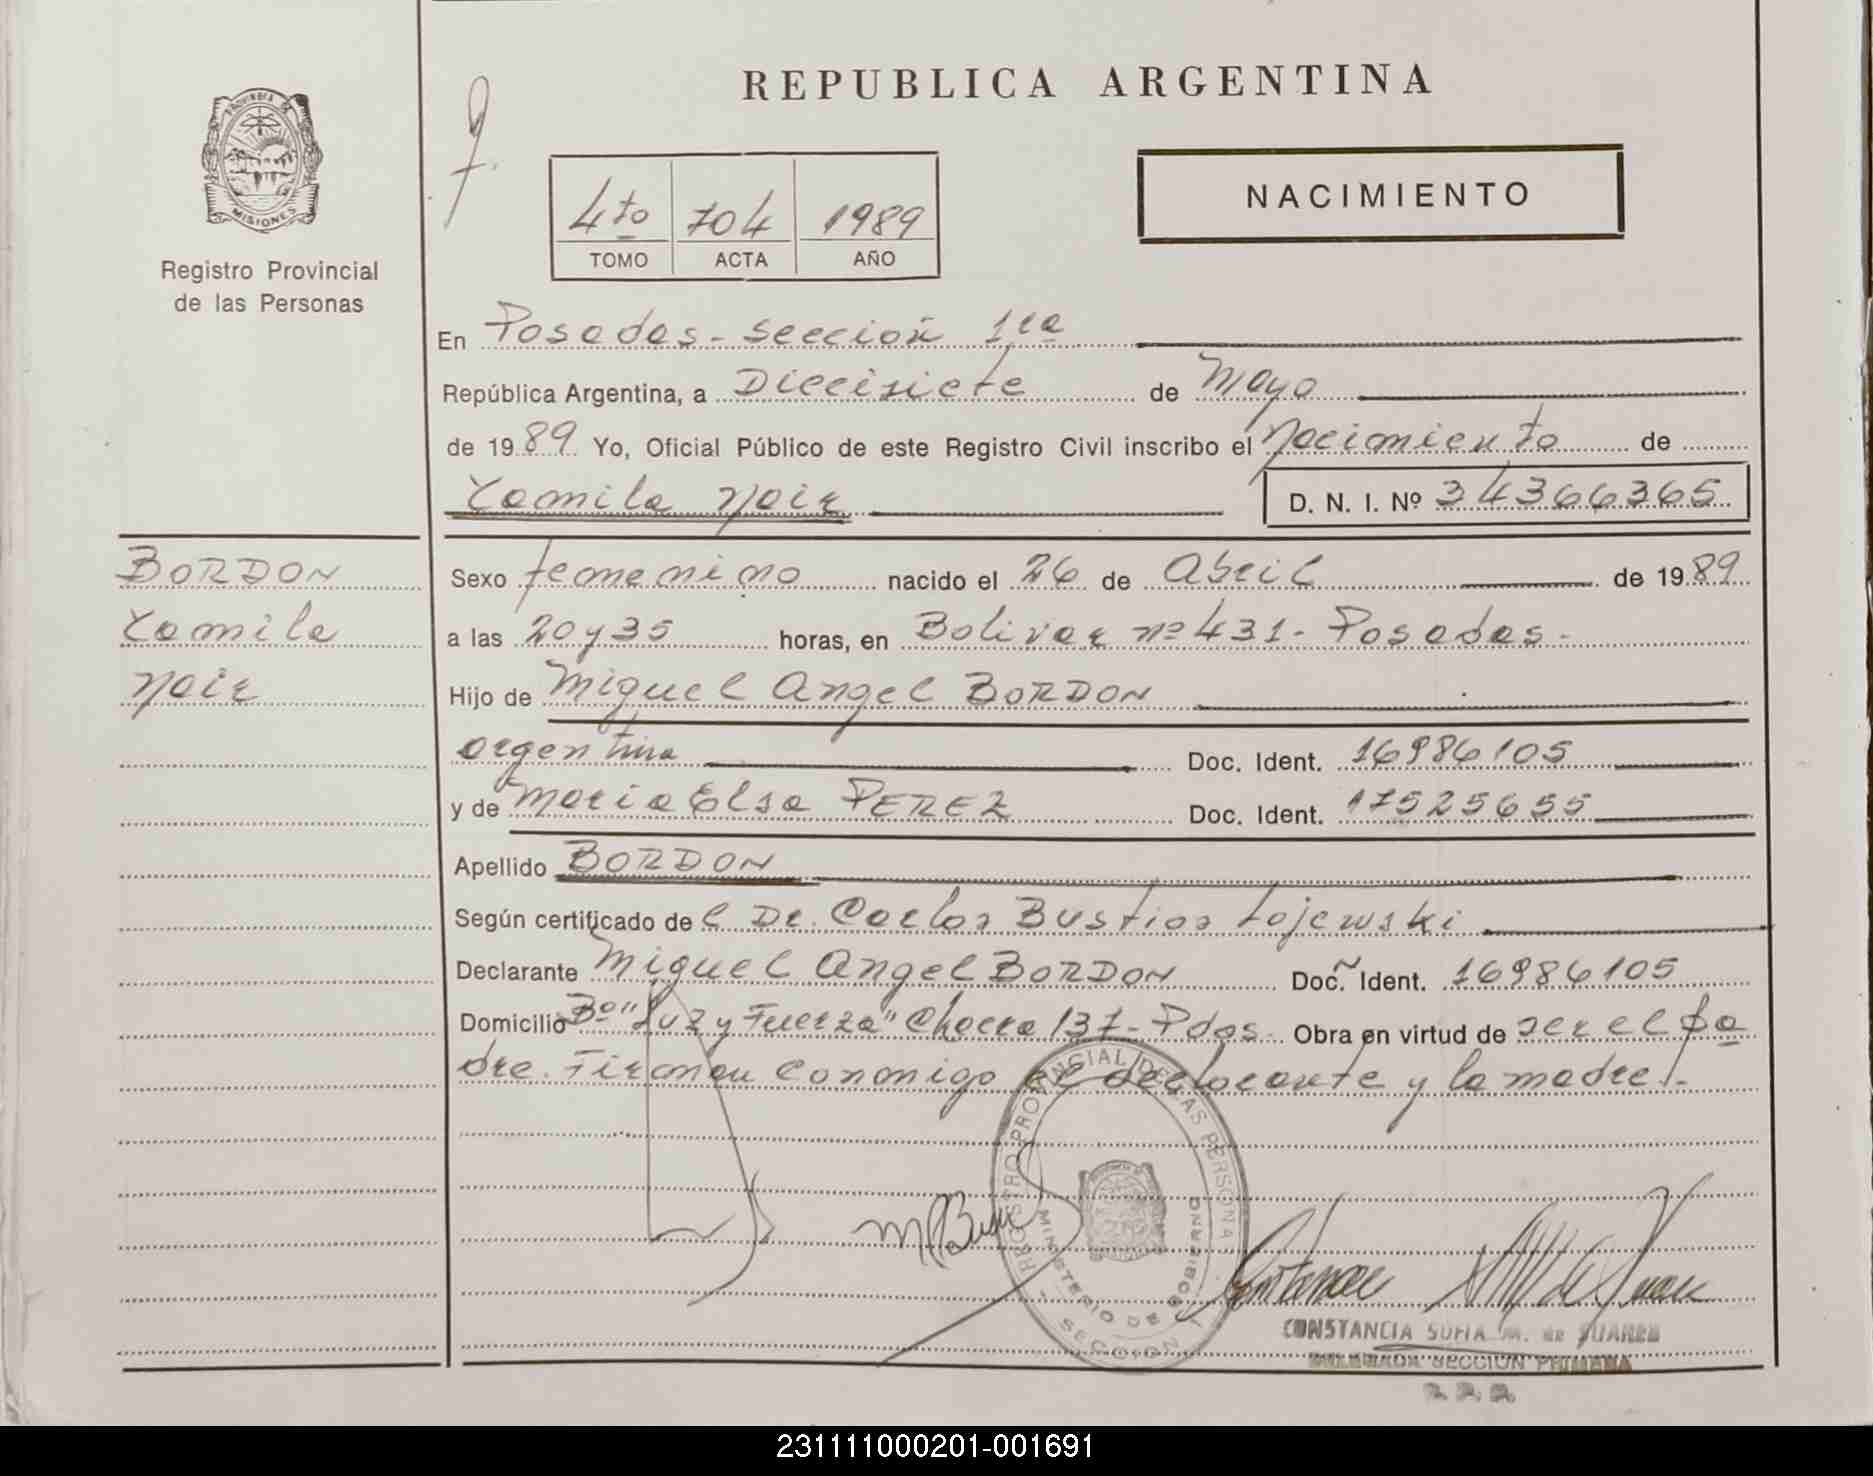 REPUBLICA ARGENTINA
PROVINCIA DE
MISIONES
Registro Provincial
de las Personas
4to 704 1989
TOMO ACTA AÑO
NACIMIENTO
En Posadas - sección 1ra
República Argentina, a Diecisiete de Mayo
de 1989 Yo, Oficial Público de este Registro Civil inscribo el Nacimiento de
Yamila Nair D. N. I. Nº 34366365
BORDON
Yamila
Nair
Sexo femenino nacido el 26 de Abril de 1989
a las 20 y 35 horas, en Bolivar nº 431 - Posadas -
Hijo de Miguel Angel BORDON
argentina Doc. Ident. 16986105
y de Maria Elsa PEREZ Doc. Ident. 17525655
Apellido BORDON
Según certificado del Dr. Carlos Bustios Lojewski
Declarante Miguel Angel BORDON Doc. Ident. 16986105
Domicilio Bº "Luz y Fuerza" Chacra 137 - Pdas - Obra en virtud de ser el pa
dre. Firman conmigo el declarante y la madre. -
REGISTRO PROVINCIAL DE LAS PERSONAS
MINISTERIO DE GOBIERNO
SECCION 1
CONSTANCIA SOFIA M. de SUAREZ
DELEGADA SECCION PRIMERA
231111000201-001691